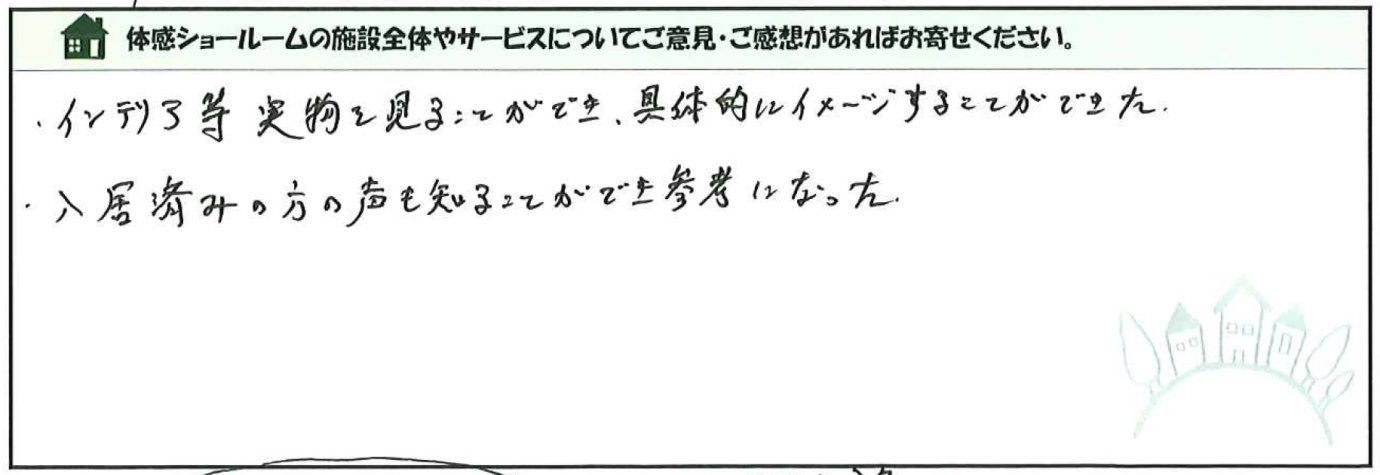 体感ショールームの施設全体やサービスについてご意見・ご感想があればお寄せください。
・インテリア等 実物を見ることができ、具体的にイメージすることができた.
・入居済みの方の声も知ることができ参考になった.